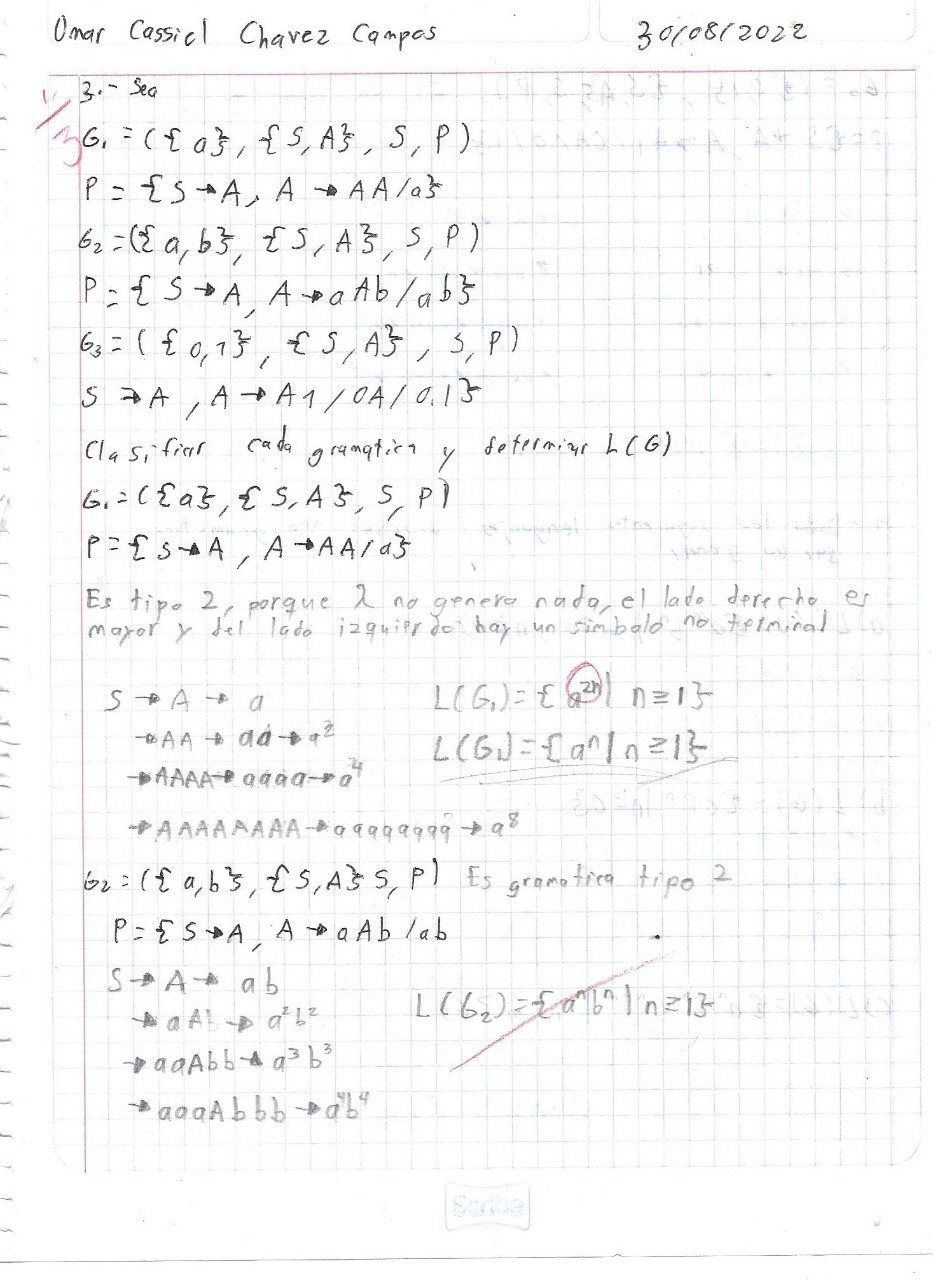 Omar Cassiel Chavez Campos 30/08/2022
1/3
3.- Sea
G₁ = ({a}, {S,A}, S, P)
P = {S → A, A → AA/a}
G₂ = ({a,b}, {S,A}, S, P)
P = {S → A, A → aAb/ab}
G₃ = ({0,1}, {S,A}, S, P)
S → A, A → A1/0A/0.1}
Clasificar cada gramatica y determinar L(G)
G₁ = ({a}, {S,A}, S, P)
P = {S → A, A → AA/a}
Es tipo 2, porque λ no genera nada, el lado derecho es
mayor y del lado izquierdo hay un simbolo no terminal
S → A → a L(G₁) = {a²ⁿ| n≥1}
→ AA → aa → a² L(G₁) = {aⁿ| n≥1}
→ AAAA → aaaa → a⁴
→ AAAAAAAA → aaaaaaaa → a⁸
G₂ = ({a,b}, {S,A} S, P) Es gramatica tipo 2
P = {S → A, A → aAb/ab
S → A → ab
→ aAb → a²b² L(G₂) = {aⁿbⁿ| n≥1}
→ aaAbb → a³b³
→ aaaAbbb → a⁴b⁴
Scribe